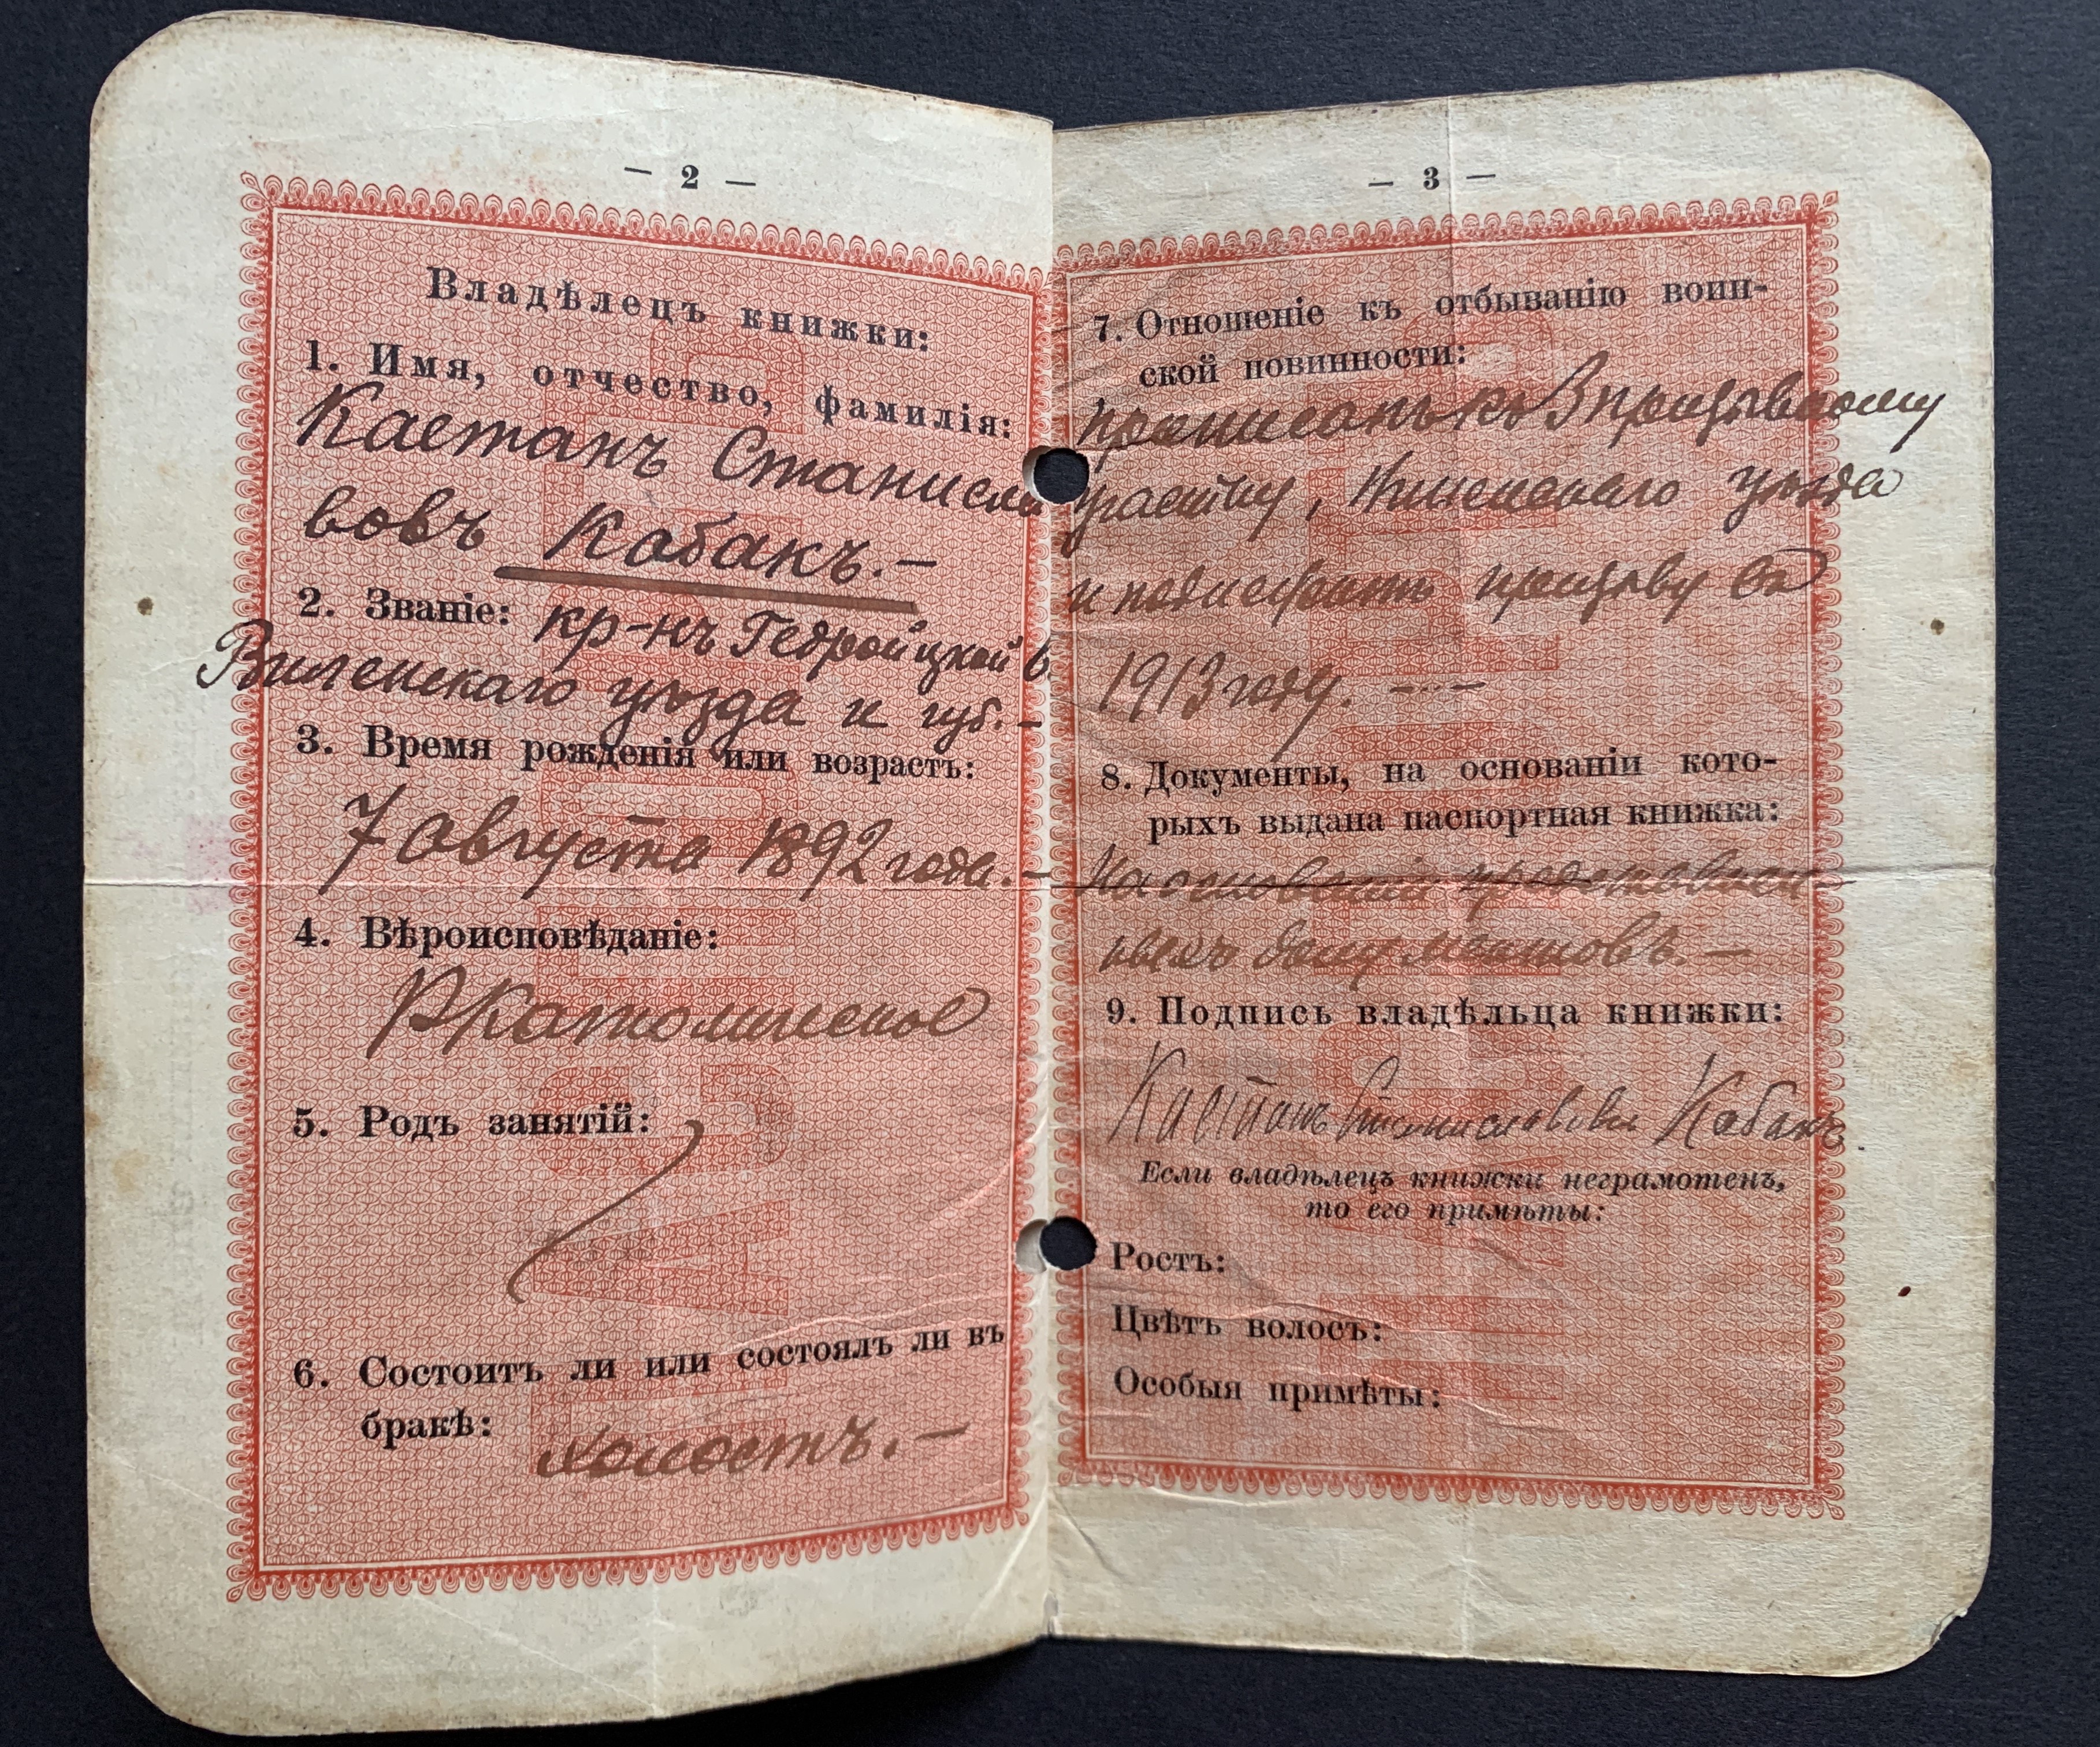 — 2 —
Владѣлецъ книжки:
1. Имя, отчество, фамилія:
Каетанъ Станисла
вовъ Кабакъ.—
2. Званіе: кр-нъ Гедройцкой в.
Виленскаго уѣзда и губ.—
3. Время рожденія или возрастъ:
7 августа 1892 года.—
4. Вѣроисповѣданіе:
Р Католическое
5. Родъ занятій:
6. Состоитъ ли или состоялъ ли въ
бракѣ: холостъ.—
— 3 —
7. Отношеніе къ отбыванію воин-
ской повинности:
приписанъ къ 3 призывному
участку, уѣзда
и подлежитъ призыву въ
1913 году. — — —
8. Документы, на основаніи кото-
рыхъ выдана паспортная книжка:
На основаніи представлен-
ныхъ документовъ.—
9. Подпись владѣльца книжки:
Каетанъ Станиславовъ Кабакъ.
Если владѣлецъ книжки неграмотенъ,
то его примѣты:
Ростъ:
Цвѣтъ волосъ:
Особыя примѣты: